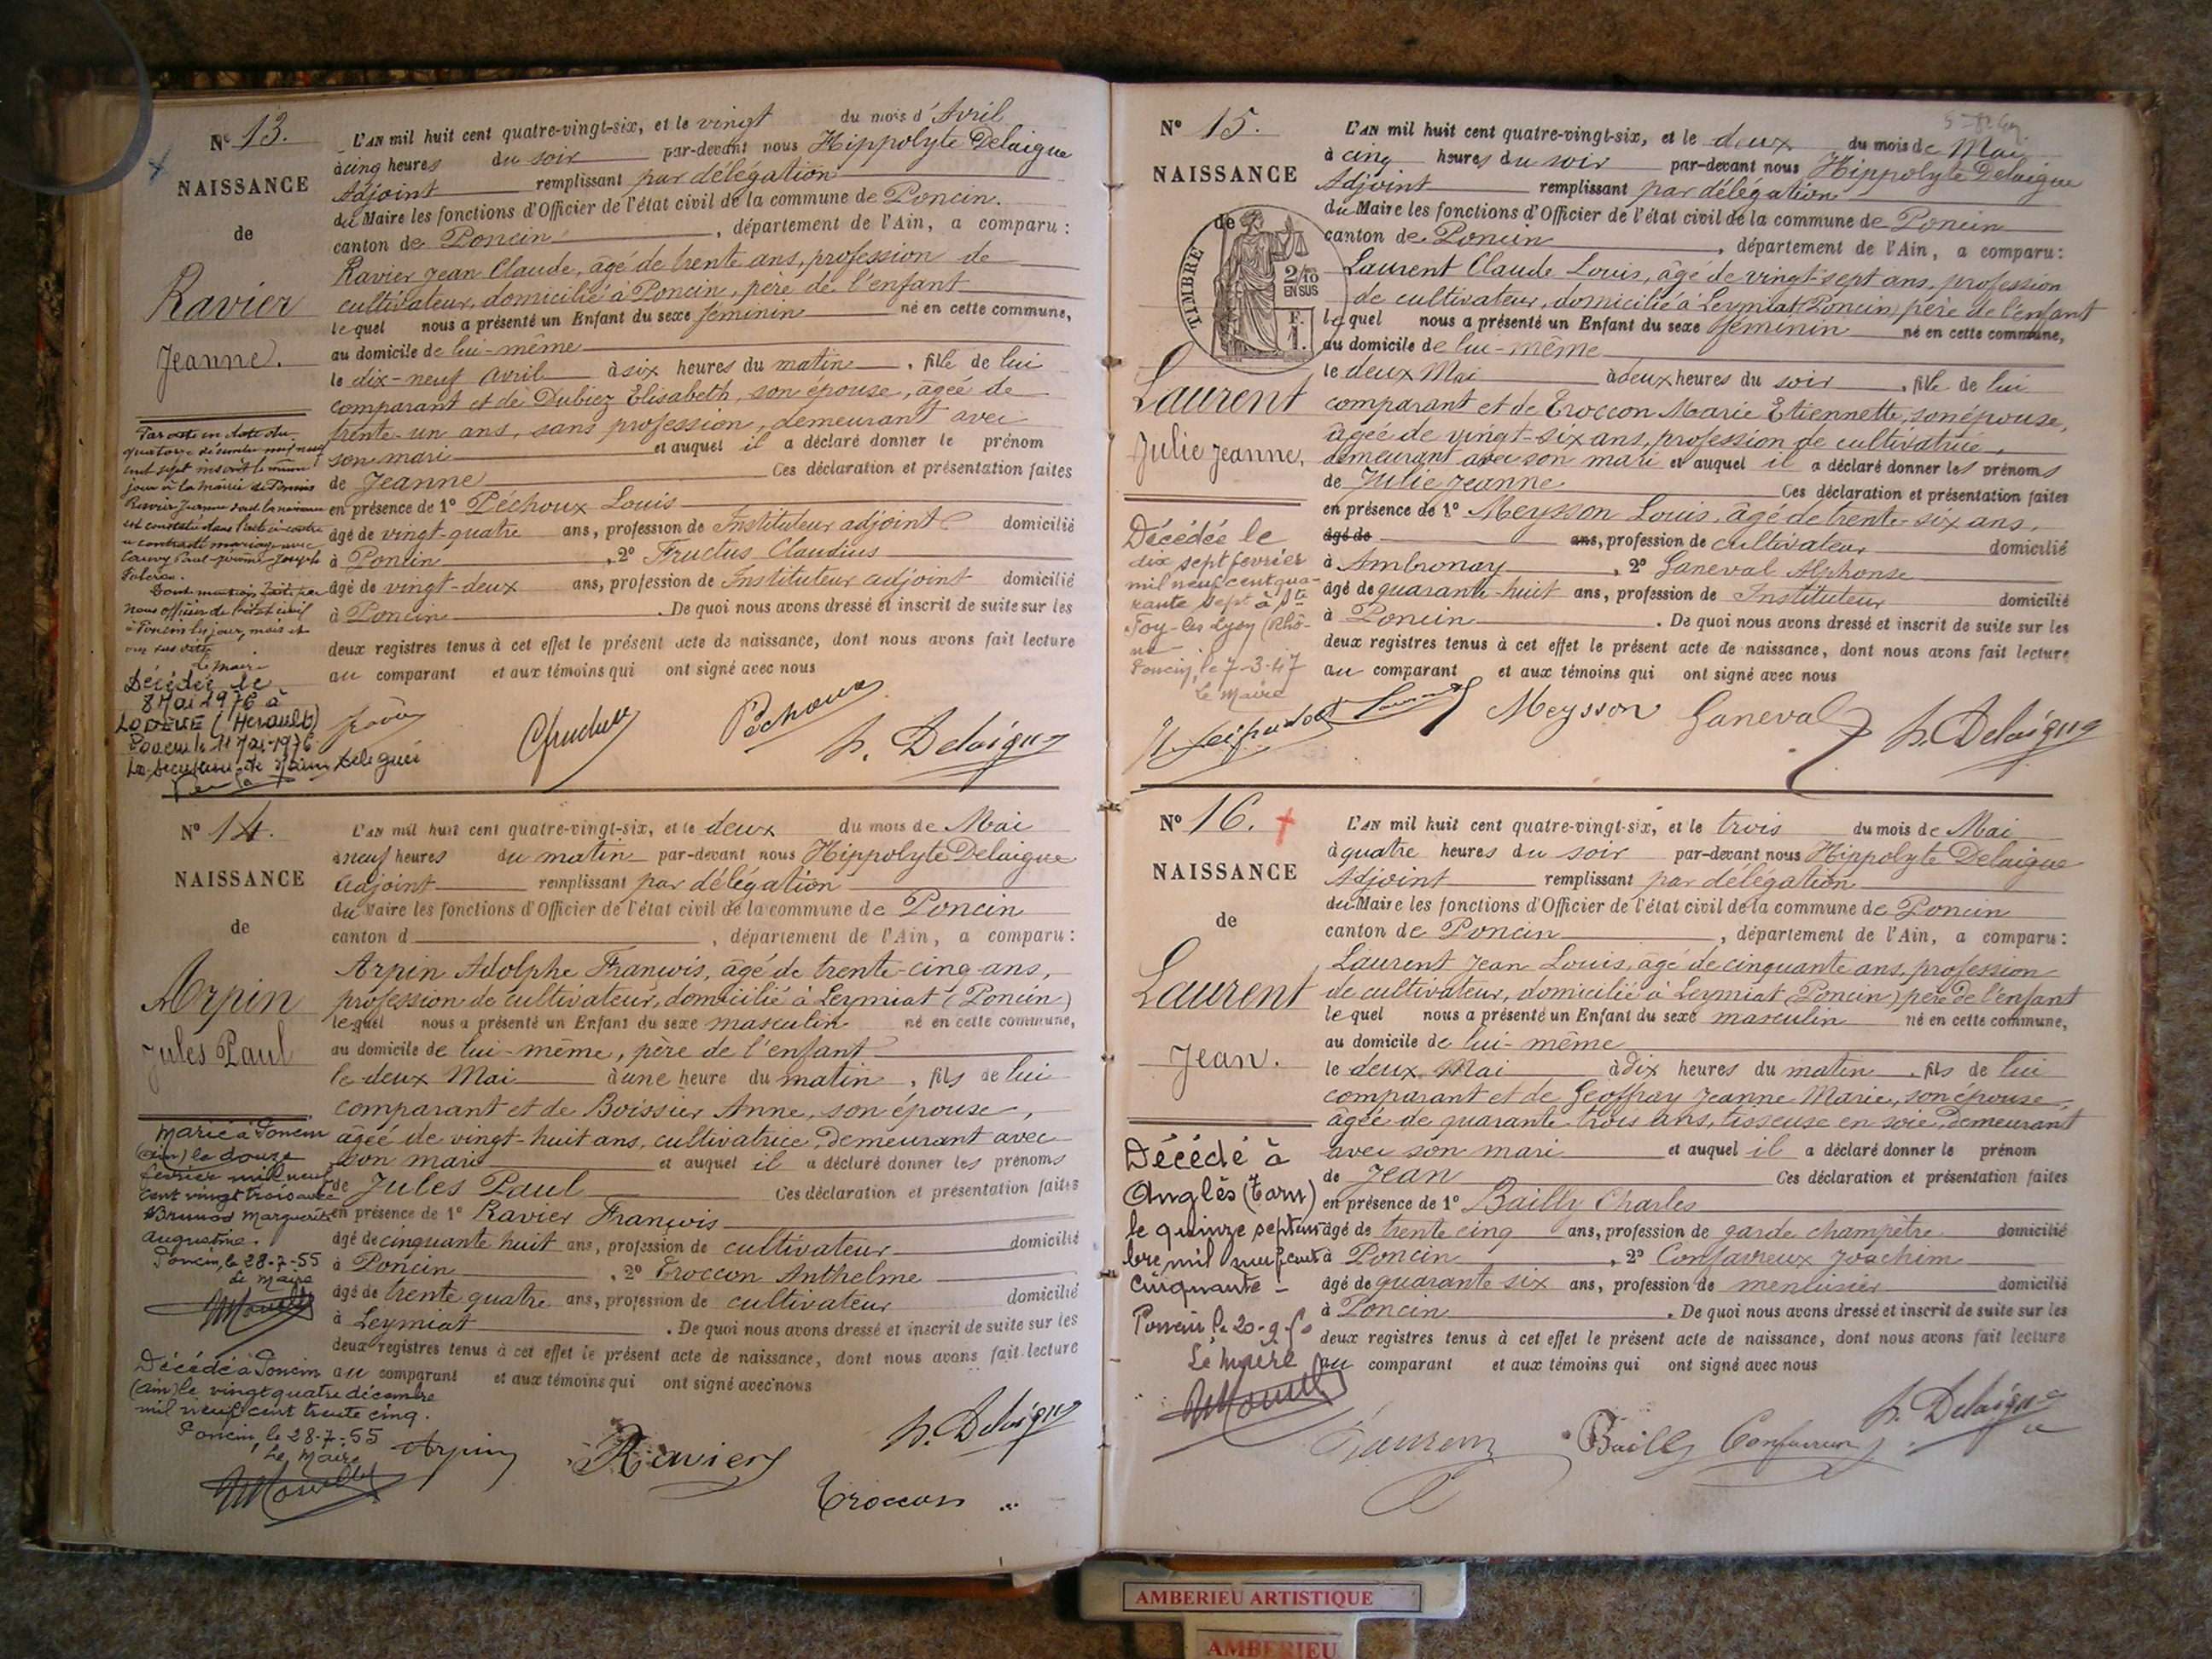 N° 13.
NAISSANCE
de
Ravier
Jeanne.
L'AN mil huit cent quatre-vingt-six, et le vingt du mois d'Avril
à cinq heures du soir par-devant nous Hippolyte Delaigue
Adjoint remplissant par délégation
du Maire les fonctions d'Officier de l'état civil de la commune de Poncin.
canton de Poncin, département de l'Ain, a comparu :
Ravier Jean Claude, âgé de trente ans, profession de
cultivateur, domicilié à Poncin, père de l'enfant
lequel nous a présenté un Enfant du sexe féminin né en cette commune,
au domicile de lui-même
le dix-neuf Avril à six heures du matin, fille de lui
comparant et de Dubiez Elisabeth, son épouse, âgée de
trente-un ans, sans profession, demeurant avec
son mari et auquel il a déclaré donner le prénom
de Jeanne Ces déclaration et présentation faites
en présence de 1° Péchoux Louis
âgé de vingt-quatre ans, profession de Instituteur adjoint domicilié
à Poncin, 2° Fructus Claudius
âgé de vingt-deux ans, profession de Instituteur adjoint domicilié
à Poncin. De quoi nous avons dressé et inscrit de suite sur les
deux registres tenus à cet effet le présent acte de naissance, dont nous avons fait lecture
au comparant et aux témoins qui ont signé avec nous
Par acte en date du
quatorze décembre mil neuf
cent sept inscrit le même
jour à la mairie de Poncin
Ravier Jeanne dont la naissance
est constatée dans l'acte ci-contre
a contracté mariage avec
Paul Joseph
nous officier de l'état civil
à Poncin les jour, mois et
an
Le Maire
Décédée le
8 Mai 1976 à
LODEVE (Herault)
Poncin le 11 Mai 1976
délégué
Péchoux
h. Delaigue
N° 14.
NAISSANCE
de
Arpin
Jules Paul
L'AN mil huit cent quatre-vingt-six, et le deux du mois de Mai
à neuf heures du matin par-devant nous Hippolyte Delaigue
Adjoint remplissant par délégation
du Maire les fonctions d'Officier de l'état civil de la commune de Poncin
canton d, département de l'Ain, a comparu :
Arpin Adolphe François, âgé de trente-cinq ans,
profession de cultivateur, domicilié à Leymiat (Poncin)
lequel nous a présenté un Enfant du sexe masculin né en cette commune,
au domicile de lui-même, père de l'enfant
le deux Mai à une heure du matin, fils de lui
comparant et de Boissier Anne, son épouse,
âgée de vingt-huit ans, cultivatrice, demeurant avec
son mari et auquel il a déclaré donner les prénoms
de Jules Paul Ces déclaration et présentation faites
en présence de 1° Ravier François
âgé de cinquante huit ans, profession de cultivateur domicilié
à Poncin, 2° Troccon Anthelme
âgé de trente quatre ans, profession de cultivateur domicilié
à Leymiat. De quoi nous avons dressé et inscrit de suite sur les
deux registres tenus à cet effet le présent acte de naissance, dont nous avons fait lecture
au comparant et aux témoins qui ont signé avec nous
Marié à Poncin
(ain) le douze
février mil neuf
cent vingt trois avec
Marguerite
augustine.
Poncin, le 28-7-55
Le Maire
Décédé à Poncin
(ain) le vingt quatre décembre
mil neuf cent trente cinq.
Poncin, le 28-7-55
Le Maire
Arpin
Ravier
h. Delaigue
Troccon
N° 15.
NAISSANCE
de
TIMBRE
2/10
EN SUS
F.
1.
Laurent
Julie Jeanne,
L'AN mil huit cent quatre-vingt-six, et le deux du mois de Mai
à cinq heures du soir par-devant nous Hippolyte Delaigue
Adjoint remplissant par délégation
du Maire les fonctions d'Officier de l'état civil de la commune de Poncin
canton de Poncin, département de l'Ain, a comparu :
Laurent Claude Louis, âgé de vingt-sept ans, profession
de cultivateur, domicilié à Leymiat (Poncin) père de l'enfant
lequel nous a présenté un Enfant du sexe féminin né en cette commune,
au domicile de lui-même
le deux Mai à deux heures du soir, fille de lui
comparant et de Troccon Marie Etiennette, son épouse,
âgée de vingt-six ans, profession de cultivatrice,
demeurant avec son mari et auquel il a déclaré donner les prénoms
de Julie Jeanne Ces déclaration et présentation faites
en présence de 1° Meysson Louis, âgé de trente-six ans,
âgé de ans, profession de cultivateur domicilié
à Ambronay, 2° Ganeval Alphonse
âgé de quarante-huit ans, profession de Instituteur domicilié
à Poncin. De quoi nous avons dressé et inscrit de suite sur les
deux registres tenus à cet effet le présent acte de naissance, dont nous avons fait lecture
au comparant et aux témoins qui ont signé avec nous
Décédée le
dix sept février
mil neuf cent qua-
rante sept à Ste
Foy-les-Lyon (Rhô-
ne
Poncin, le 7-3-47
Le Maire
Meysson
Ganeval
h. Delaigue
N° 16.
NAISSANCE
de
Laurent
Jean.
L'AN mil huit cent quatre-vingt-six, et le trois du mois de Mai
à quatre heures du soir par-devant nous Hippolyte Delaigue
Adjoint remplissant par délégation
du Maire les fonctions d'Officier de l'état civil de la commune de Poncin
canton de Poncin, département de l'Ain, a comparu :
Laurent Jean Louis, âgé de cinquante ans, profession
de cultivateur, domicilié à Leymiat (Poncin) père de l'enfant
lequel nous a présenté un Enfant du sexe masculin né en cette commune,
au domicile de lui-même
le deux Mai à dix heures du matin, fils de lui
comparant et de Geoffray Jeanne Marie, son épouse,
âgée de quarante-trois ans, tisseuse en soie, demeurant
avec son mari et auquel il a déclaré donner le prénom
de Jean Ces déclaration et présentation faites
en présence de 1° Bailly Charles
âgé de trente cinq ans, profession de garde champêtre domicilié
à Poncin, 2° Confavreux Joachim
âgé de quarante six ans, profession de menuisier domicilié
à Poncin. De quoi nous avons dressé et inscrit de suite sur les
deux registres tenus à cet effet le présent acte de naissance, dont nous avons fait lecture
au comparant et aux témoins qui ont signé avec nous
Décédé à
Anglès (Tarn)
le quinze septem
bre mil neuf cent
cinquante -
Poncin le 20-9-50
Le Maire
Laurent
Bailly
Confavreux
h. Delaigue
AMBERIEU ARTISTIQUE
AMBERIEU